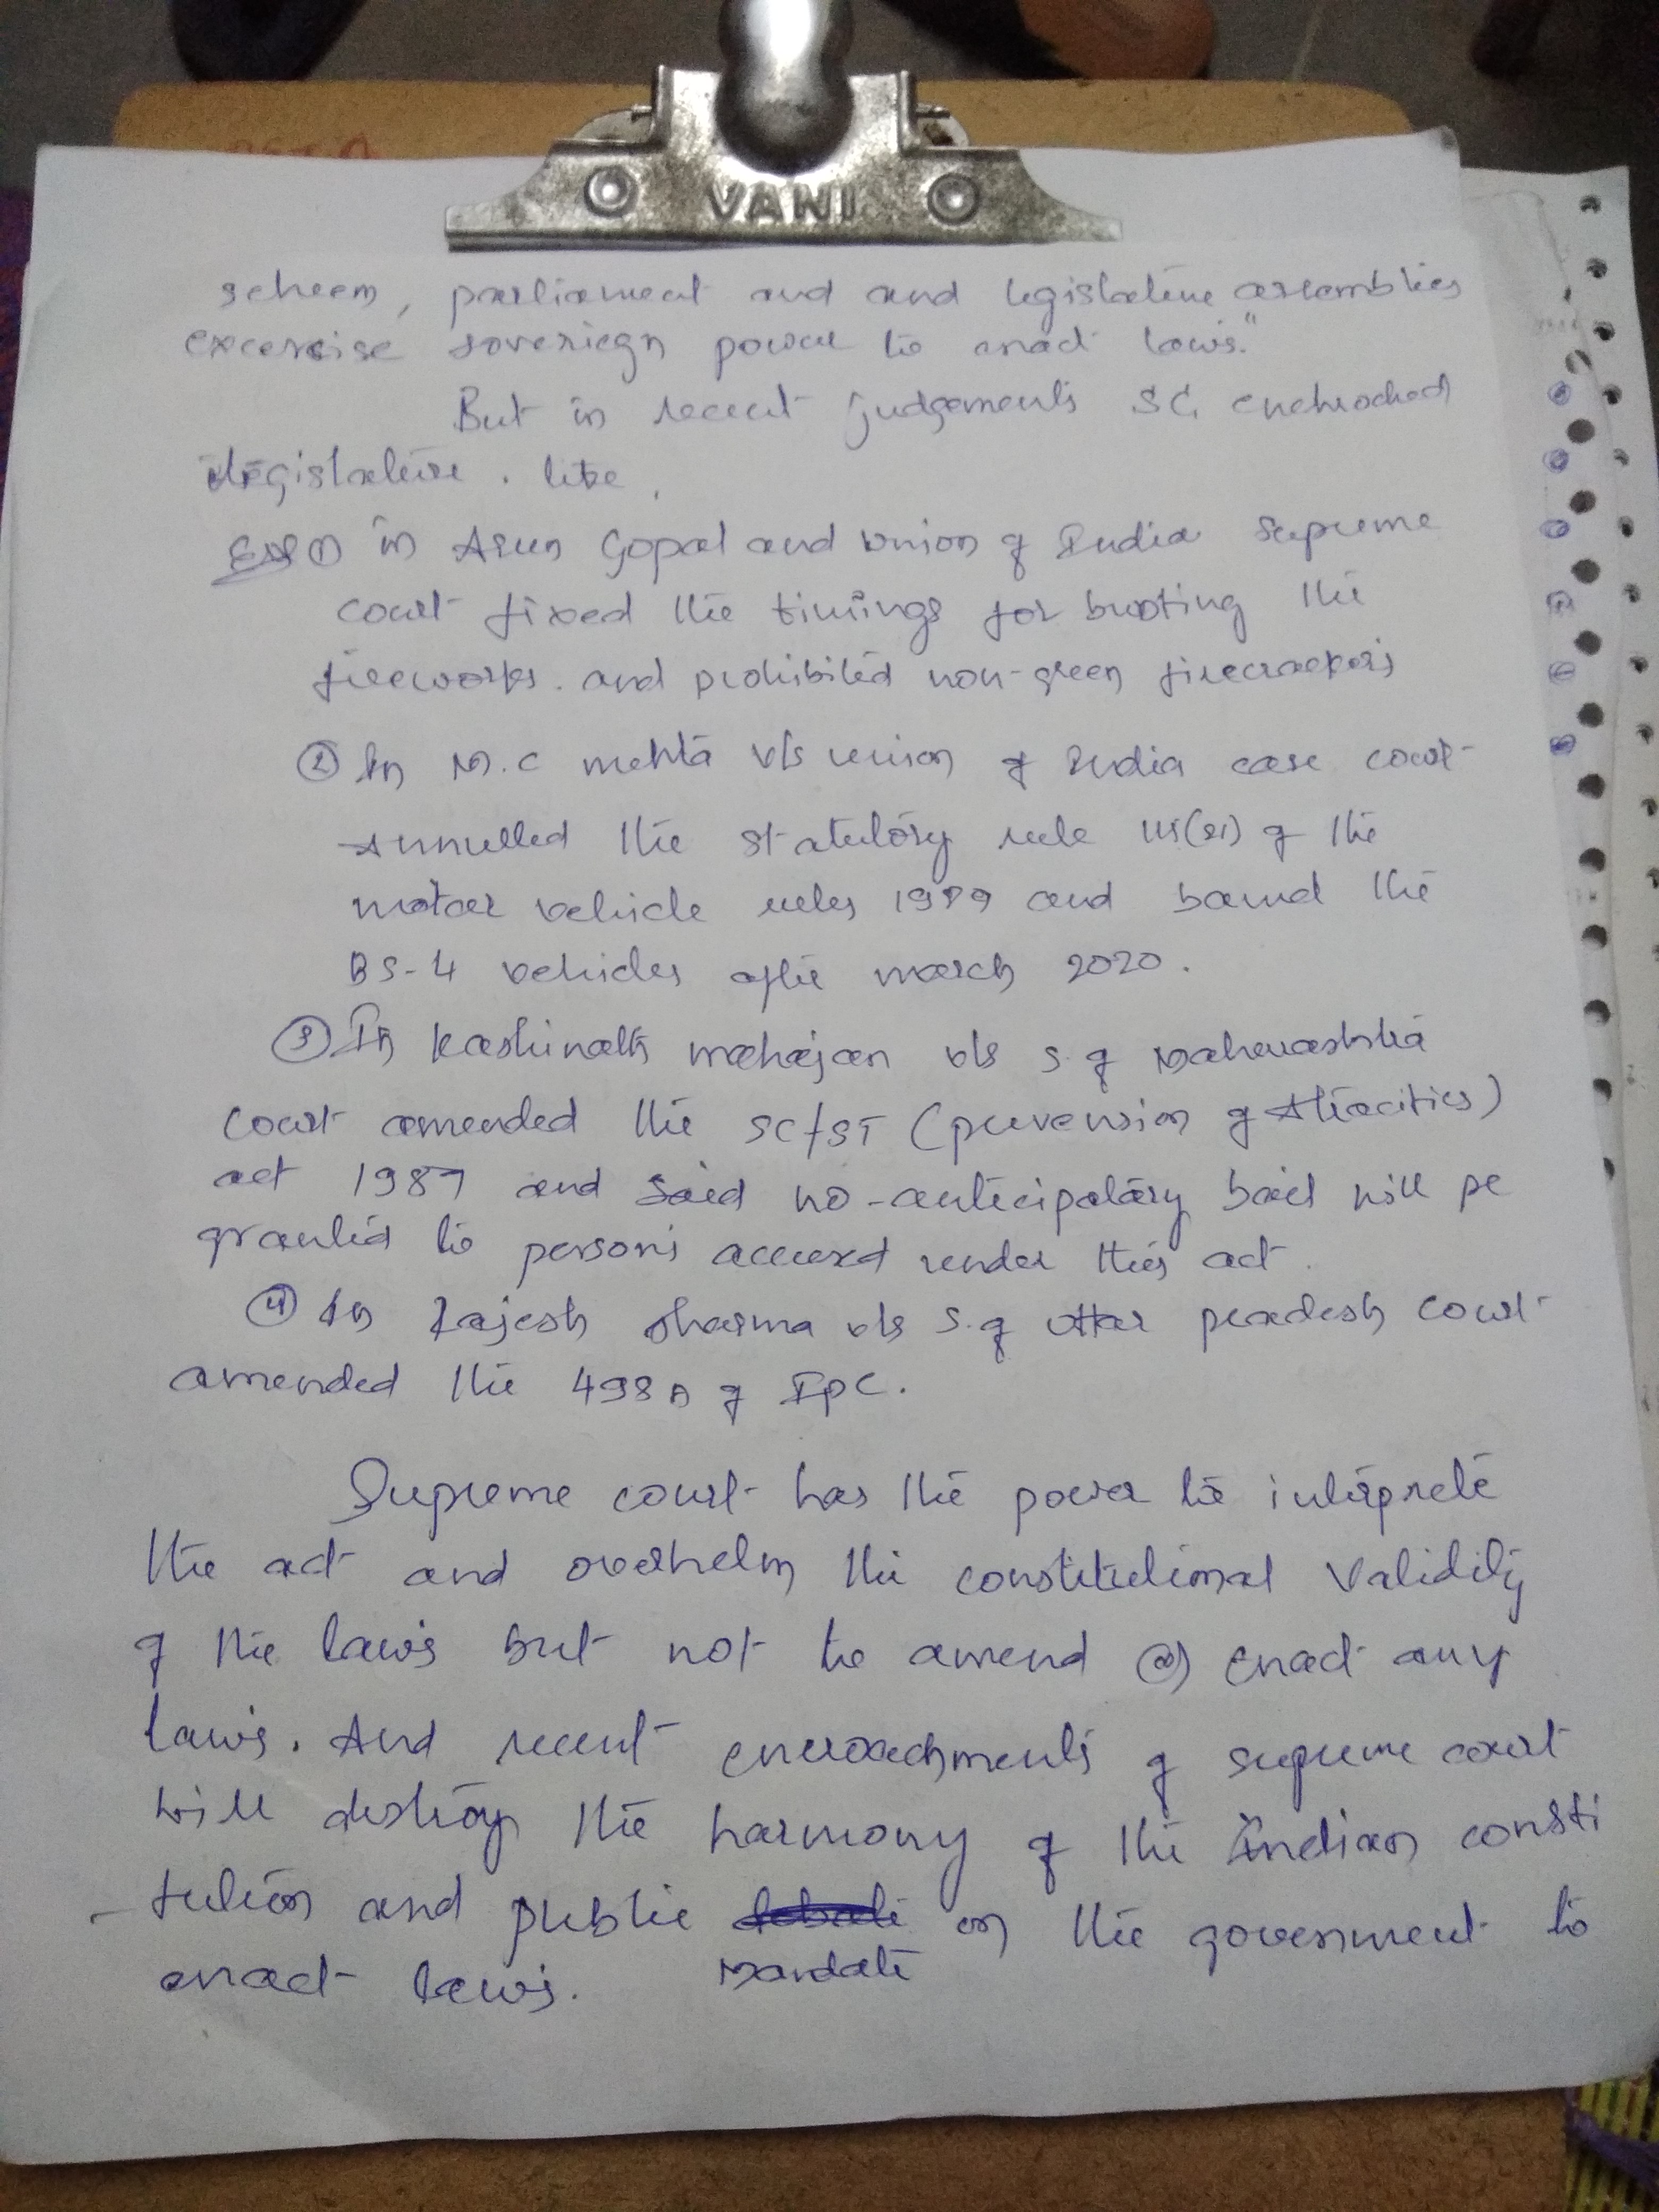 VANI
scheem, parliament and and legislative assemblies
excercise soveriegn power to enact laws."
But in recent judgements SC enchroched
legislative. like,
① in Arun Gopal and Union of India Supreme
court fixed the timings for busting the
fireworks. and prohibited non-green firecrackers
② In M.C mehta v/s union of India case court
Annulled the statutory rule 115(21) of the
motor vehicle rules 1989 and band the
BS-4 vehicles after march 2020.
③ In kashinath mahajan v/s S. of Maharashtra
court amended the SC/ST (prevension of Atracities)
act 1987 and said no-anticipatary bail will be
granted to persons accused under this act.
④ In Rajesh sharma v/s S. of uttar pradesh court
amended the 498A of IPC.
Supreme court has the power to interprete
the act and overhelm the constitutional validity
of the laws but not to amend or enact any
laws. And recent encroachments of supreme court
will destroy the harmony of the Indian consti
-tution and public on the government to
enact laws. Mandate